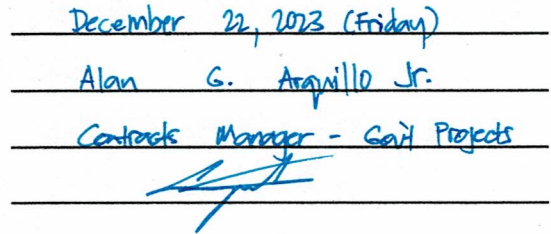 December 22, 2023 (Friday)
Alan G. Arquillo Jr.
Contracts Manager - Gov't Projects